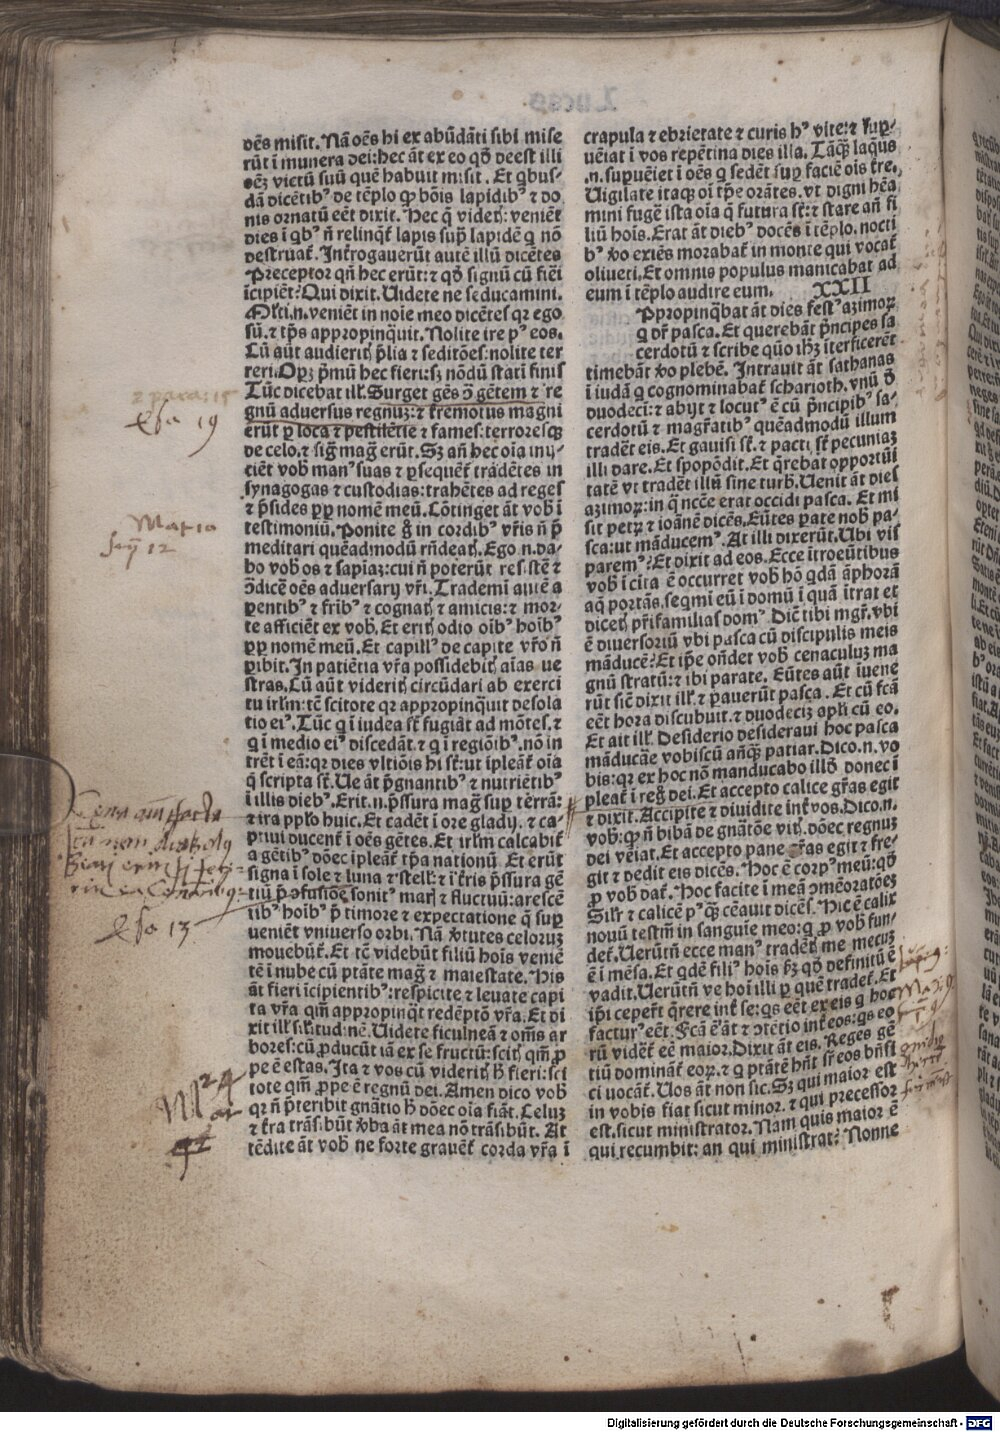 oēs misit. Nā oēs hi ex abūdāti sibi mise
rūt ī munera dei: hec āt ex eo qđ deest illi
oēꝫ victū suū quē habuit misit. Et qbus-
dā dicētibꝰ de tēplo ꝙ bōis lapidibꝰ ⁊ do
nis ornatū eēt dixit. Hec q̄ videtꝭ: veniēt
dies ī qbꝰ n̄ relinq̄t̉ lapis sup̄ lapidē q nō
destruat̉. Int̉rogauerūt autē illū dicētes
Preceptor qn̄ hec erūt: ⁊ qđ signū cū fiēi
īcipiēt? Qui dixit. Uidete ne seducamini.
Ml̉ti.n.veniēt in noīe meo dicētes qꝛ ego
sū. ⁊ tp̄s appropinq̄uit. Nolite ire pꝰ eos.
Cū aūt audieritꝭ p̄lia ⁊ seditōes: nolite ter
reri. Opꝫ p̄mū hec fieri: sꝫ nōdū statī finis
Tūc dicebat illꝭ. Surget gēs ꝯ̄ gētem ⁊ re
gnū aduersus regnuꝫ: ⁊ t̉remotus magni
erūt ꝑ loca ⁊ pestilētie ⁊ fames: terroresqꝫ
de celo. ⁊ siḡ maḡ erūt. Sꝫ an̄ hec oīa inij-
ciēt vobꝭ manꝰ suas ⁊ ꝑsequēt̉ tradētes in
synagogas ⁊ custodias: trahētes ad reges
⁊ p̄sides ꝓp̄ nomē meū. Cōtinget āt vobꝭ ī
testimoniū. Ponite g̊ in cordibꝰ vr̄is n̄ p̄
meditari quēadmodū rn̄deatꝭ. Ego.n.da-
bo vobꝭ os ⁊ sapīaꝫ: cui n̄ poterūt resistē ⁊
ꝯdicē oēs aduersarij vr̄i. Trademī autē a
ꝑentibꝰ ⁊ fr̄ibꝰ ⁊ cognatꝭ ⁊ amicis: ⁊ mor-
te afficiēt ex vobꝭ. Et eritꝭ odio oībꝰ hoībꝰ
ꝓp̄ nomē meū. Et capillꝰ de capite vr̄o n̄
ꝑibit. In patiētia vr̄a possidebitꝭ aīas ue
stras. Cū aūt videritꝭ circūdari ab exerci
tu irl̄m: tē scitote qꝛ appropinq̄uit desola
tio eiꝰ. Tūc q ī iudea sт̄ fugiāt ad mōtes. ⁊
q ī medio eiꝰ discedāt. ⁊ q ī regiōibꝰ. nō in
trēt ī eā: qꝛ dies vltiōis hi sт̄: ut īpleāt̉ oīa
q̄ scripta sт̄. Ue āt p̄gnantibꝰ ⁊ nutriētibꝰ
ī illis diebꝰ. Erit.n.p̄ssura maḡ sup̄ tērrā:
⁊ ira pplo huic. Et cadēt ī ore gladij. ⁊ ca-
ptiui ducent̉ ī oēs gētes. Et irl̄m calcabit̉
a gētibꝰ dōec īpleāt̉ tpa nationū. Et erūt
signa ī sole ⁊ luna ⁊ stellꝭ ⁊ ī t̉ris p̄ssura gē
tiū p̄ ꝯfusiōe sonitꝰ marꝭ ⁊ fluctuū: arescē
tibꝰ hoībꝰ p̄ timore ⁊ expectatione q̄ sup̄
ueniēt vniuerso orbi. Nā v̉tutes celoruꝫ
mouebūt̉. Et tē videbūt filiū hoīs veniē
tē ī nube cū ptāte maḡ ⁊ maiestate. His
āt fieri īcipientibꝰ: respicite ⁊ leuate capi
ta vr̄a qm̄ appropinq̄t redēptō vr̄a. Et di
xit illꝭ sil̉itudinē. Uidete ficulneā ⁊ om̄s ar
bores: cū ꝓducūt iā ex se fructū: scitꝭ qm̄ ꝓ
pe ē estas. Ita ⁊ vos cū videritꝭ h̄ fieri: sci
tote qm̄ ꝓpe ē regnū dei. Amen dico vobꝭ
qꝛ n̄ p̄teribit gn̄atio h̄ dōec oīa fiāt. Celuꝫ
⁊ t̉ra trāsibūt v̉ba āt mea nō trāsibūt. At
tēdite āt vobꝭ ne forte grauēt̉ corda vr̄a ī
crapula ⁊ ebrietate ⁊ curis hꝰ vite: ⁊ sup̄-
uēiat ī vos repētina dies illa. Tāqꝫ laqūs
.n. sup̄ueiet ī oēs q sedēt sup̄ faciē ois t̉re.
Uigilate itaqꝫ oī tp̄e orātes. vt digni hēa
mini fugē ista oīa q̄ futura sт̄: ⁊ stare an̄ fi
liū hoīs. Erat āt diebꝰ docēs ī tēplo. nocti
bꝰ v̉o exiēs morabat̉ in monte qui vocat̉
oliueti. Et omnis populus manicabat ad
eum ī tēplo audire eum. XXII
Appropinq̄bat āt dies festꝰ azimoꝝ
q dr̄ pasca. Et querebāt p̄ncipes sa
cerdotū ⁊ scribe quō ih̄ꝫ īterficerēt
timebāt v̉o plebē. Intrauit āt sathanas
ī iudā q cognominabat̉ scharioth. vnū ď
duodeci: ⁊ abijt ⁊ locutꝰ ē cū p̄ncipibꝰ sa-
cerdotū ⁊ magr̄atibꝰ quēadmodū illum
tradēt eis. Et gauisi sт̄. ⁊ pacti sт̄ pecuniaꝫ
illi dare. Et spopōdit. Et q̄rebat opportūi
tatē vt tradēt illū sine turbꝭ. Uenit āt dies
azimoꝝ: in q̄ nc̄ce erat occidi pasca. Et mi
sit petꝝ ⁊ ioānē dicēs. Eūtes parate nobꝭ pa-
sca: ut māducemꝰ. At illi dixerūt. Ubi vis
paremꝰ? Et dixit ad eos. Ecce ītroeūtibus
vobꝭ ī cīta ē occurret vobꝭ hō qdā āphorā
aq̄ portās. seqmi eū ī domū ī quā ītrat et
dicetꝭ pr̄ifamilias domꝰ Dic̄t tibi mgr̄. vbi
ē diuersoriū vbi pasca cū discipulis meis
māducē? Et ip̄e on̄det vobꝭ cenaculuꝫ ma
gnū stratū: ⁊ ibi parate. Eūtes aūt īuene
rūt sic̄ dixit illꝭ. ⁊ p̄auerūt pasca. Et cū fc̄a
eēt hora discubuit. ⁊ duodeciꝫ apl̄i cū eo.
Et ait illꝭ. Desiderio desideraui hoc pasca
māducāe vobiscū an̄qꝫ patiar. Dico.n. vo
bis: qꝛ ex hoc nō manducabo illđ donec ī
pleat̉ ī reg̊ dei. Et accepto calice gr̄as egit
⁊ dixit. Accipite ⁊ diuidite int̉ vos. Dico.n.
vobꝭ: ꝙ n̄ bibā de gn̄atōe vitꝭ. dōec regnuꝫ
dei vēiat. Et accepto pane gr̄as egit ⁊ fre-
git ⁊ dedit eis dicēs. Hoc ē corpꝰ meū: qđ
ꝓ vobꝭ dat̉. Hoc facite ī meā ꝯmēoratōeꝫ
Sil̉r ⁊ calicē pꝰqꝫ cēauit dicēs. Hic ē calix
nouū testm̄ in sanguīe meo: q ꝓ vobꝭ fun-
det̉. Uerūtn̄ ecce manꝰ tradētꝭ me mecuꝫ
ē ī mēsa. Et qdē filiꝰ hoīs s̄ꝫ qđ definitū ē
vadit. Uerūtn̄ ve hoī illi ꝑ quē tradet̉. Et
ip̄i ceper̄t q̄rere int̉ se: qs eēt ex eis q hoc
facturꝰ eēt. Fc̄ā ē āt ⁊ ꝯtētio int̉ eos: qs eo
rū vidēt̉ eē maior. Dixit āt eis. Reges gē
tiū dominat̉ eoꝝ. ⁊ q ptātē hn̄t sꝉ eos bn̄fi
ci uocāt̉. Uos āt non sic. Sꝫ qui maior est
in vobis fiat sicut minor. ⁊ qui precessor
est. sicut ministrator. Nam quis maior ē
qui recumbit: an qui ministrat? Nonne
2 para: 15
Esa 19
Esa 13
24
Digitalisierung gefördert durch die Deutsche Forschungsgemeinschaft - DFG